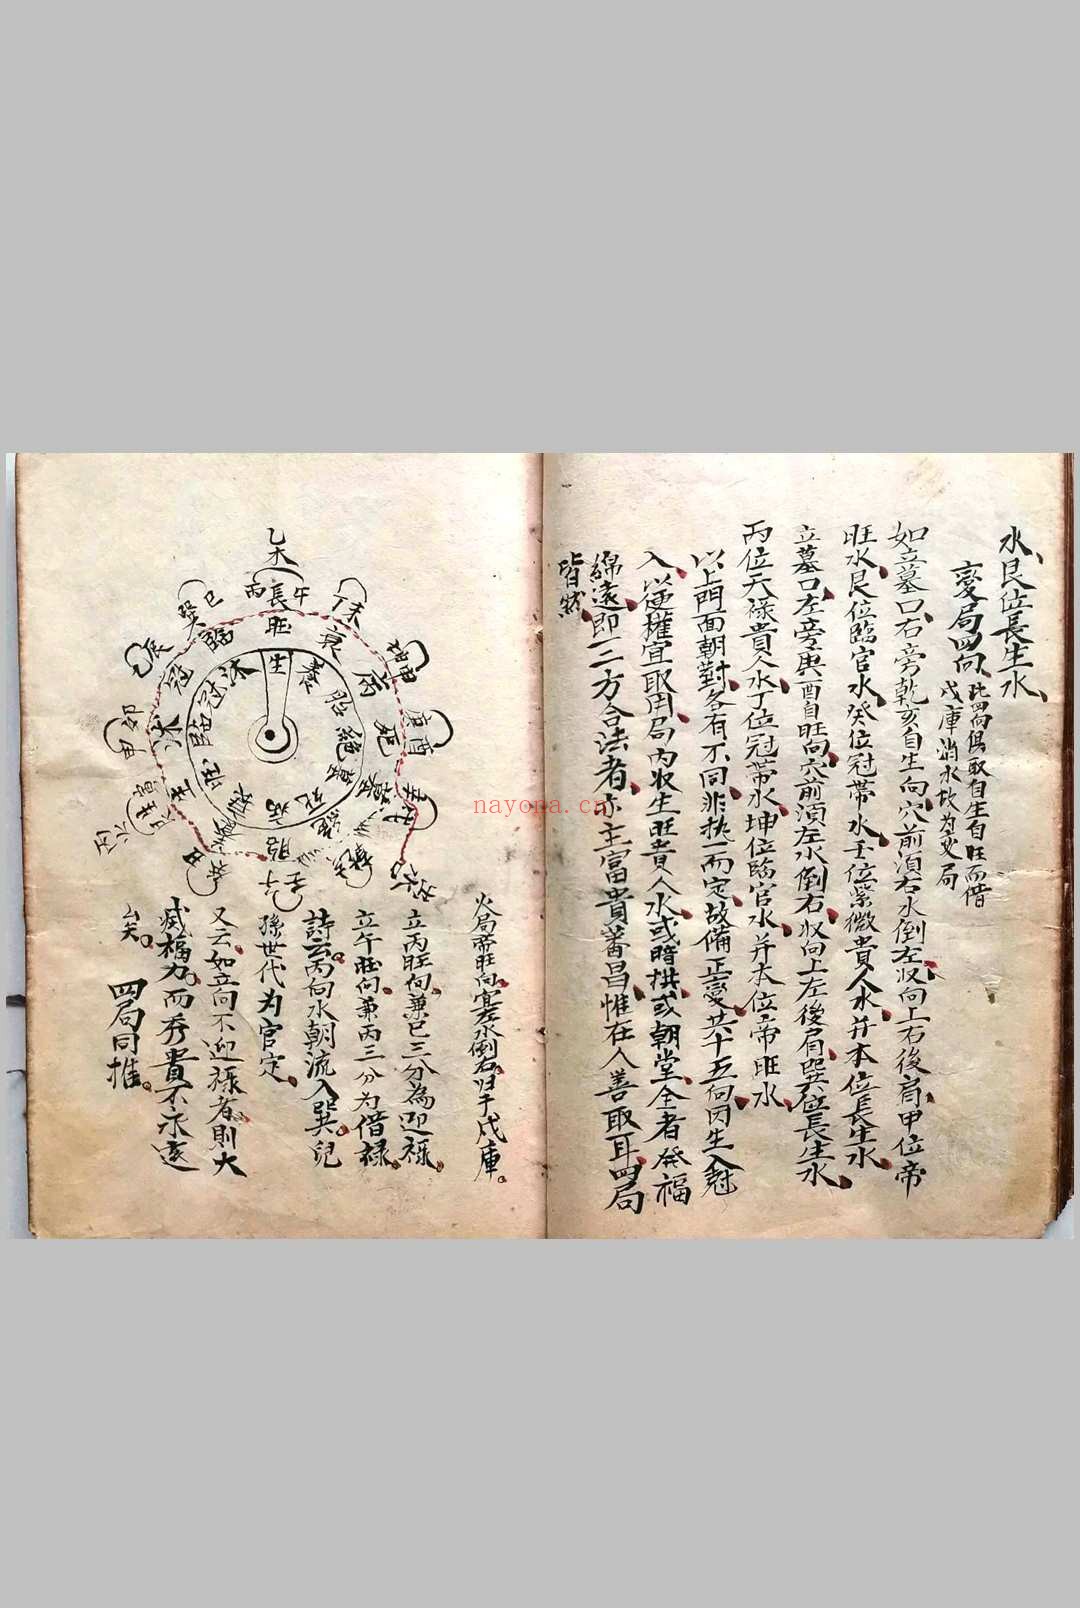 水艮位長生水
變局四向
此四向俱取自生自旺而借
戌庫消水故为变局
如立墓口右旁乾亥自生向穴前須右水倒左收向上右後肩甲位帝
旺水艮位臨官水癸位冠帶水壬位紫微貴人水并本位長生水
立墓口左旁庚酉自旺向穴前須左水倒右收向上左後肩巽位長生水
丙位天祿貴人水丁位冠帶水坤位臨官水并本位帝旺水
以上門面朝對各有不同非执一而定故備正變共十五向因生入尅
入以逆權宜取用局內收生旺貴人水或時拱或朝堂全者發福
綿遠即一二方合法者亦主富貴蕃昌惟在人善取耳四局
皆然
乙木
丙 長 午
旺
生
丁未
衰
養
病
胎
庚酉
死
絕
墓
巳
癸
臨
辰
冠
沐
甲卯
臨
病
死
胎
壬子
火局帝旺向宜左水倒右归于戌庫
立丙旺向兼巳三分為迎祿
立午旺向兼丙三分为借祿
詩云丙向水朝流入巽兒
孫世代为官定
又云如立向不迎祿者則大
减福力而秀貴不永遠
矣
四局同推
nayona.cn